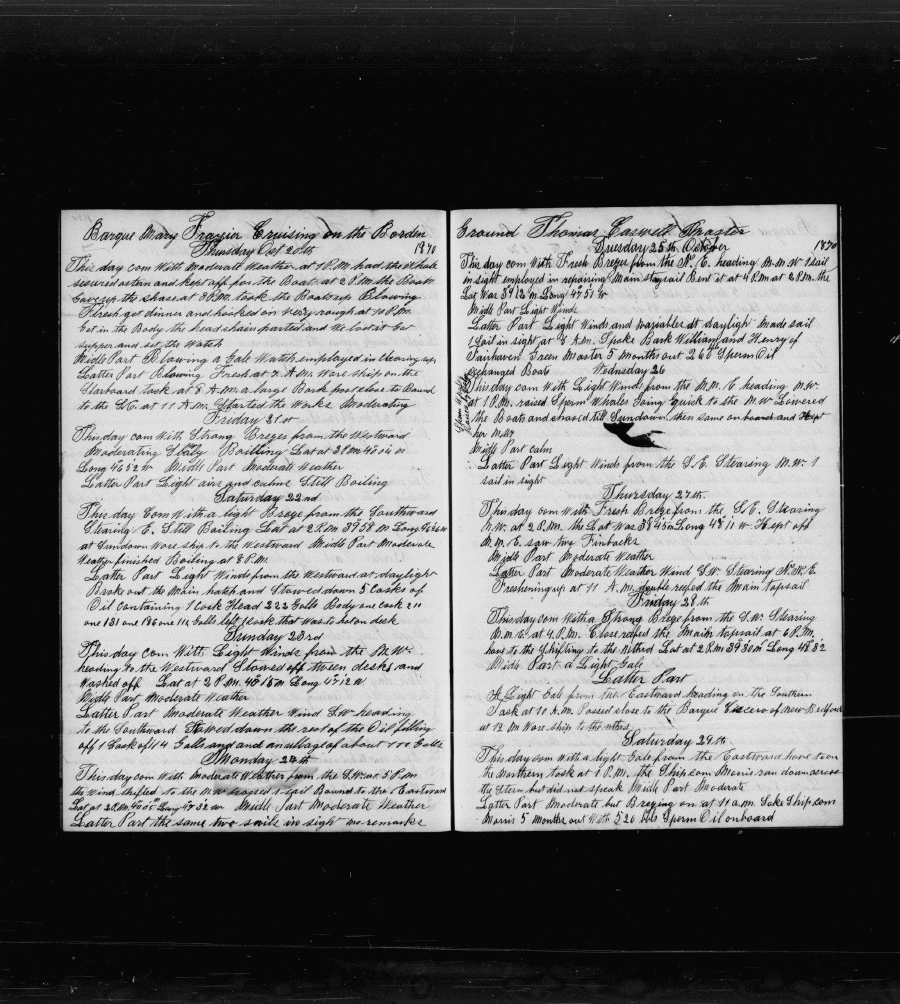 Barque Mary Frazier Cruising on the Border
Thursday Oct 20th 1870
This day com With moderate Weather at 1 P.M. had the whale
secured astern and Kept off for the Boats at 2 P.M. the Boats
Gave up the chase at 3 P.M. took the Boats up Blowing
Fresh got dinner and hooked on very rough at 10 P.M.
Got in the Body the head chain parted and We lost it Got
supper and set the Watch
Midle Part Blowing a Gale Watch employed in clearing up
Latter Part Blowing Fresh at 7 A.M. Wore ship on the
Starboard tack at 8 A.M. a large Bark past close to Bound
to the S.E. at 11 A.M. Started the Works Moderating
Friday 21st
This day com With Strong Brezes from the Westward
Moderating Sltaly Boilling Lat at 2 P.M 40 04 m
Long 46 52 W Midle Part Moderate Weather
Latter Part Light airs and calms Still Boiling
Saturday 22nd
This day Com With a light Breze from the Southward
Stearing E. Still Boiling Lat at 2 P.M 39 58 m Long
at Sundown Wore ship to the Westward Midle Part Moderate
Weather finished Boiling at 8 P.M.
Latter Part Light Winds from the Westward at daylight
Broke out the Main hatch and Stowed down 5 Casks of
Oil Containing 1 Cask Head 222 Galls Body one cask
one 131 one 126 one Galls left 1 cask that was to hot on desk
Sunday 23rd
This day com With Light Winds from the N.W.
heading to the Westward Stowed off tween desks and
Washed off Lat at 2 P.M. 40 15 m Long 47 12 W
Midle Part Moderate Weather
Latter Part Moderate Weather Wind S.W heading
to the Southward Stowed down the rest of the Oil filling
off 1 Cask of 14 Galls and and an ullage of about 100 Galls
Monday 24th
This day com With Moderate Weather from the S.W. at 5 P.M
the Wind shifted to the N.W 1 sail Bound to the Eastward
Lat at 2 P.M. 40 05 Long 47 52 W Midle Part Moderate Weather
Latter Part the same two sails in sight no remarks
Ground Thomas Caswell Master
Tuesday 25th October 1870
This day com With Fresh Brezes from the N. E. heading N.N.W 1 sail
in sight employed in repairing Main staysail Bent it at 4 P.M at 2 P.M. the
Lat Was 39 12 m Long 47 51 W
Midle Part Light Winds
Latter Part Light Winds and variables at dayligh Made sail
1 Sail in sight at 8 A.M. Spoke Bark William and Henry of
Fairhaven Green Master 5 Months out 260 Sperm Oil
exchanged Boats Wednsday 26
This day com With Light Winds from the N.N. E heading N.W.
at 1 P.M. raised Sperm Whales Going quick to the N.W Lowered
the Boats and chased till Sundown then came on board and Kept
her N.W
Midle Part calm
Latter Part Light Winds from the S.E. Stearing N.W. 1
sail in sight
Thursday 27th
This day com With Fresh Breze from the S.E. Stearing
N.W. at 2 P.M. the Lat Was 38 45 m Long 48 11 W. Kept off
N.N. E. saw two Finbacks
Midle Part Moderate Weather
Latter Part Moderate Weather Wind S.W. Stearing N.N.E.
Freshening up at 11 A.M. double reefed the Main topsail
Friday 28th
This day com With a Strong Breze from the S.W. Stearing
N.N.E. at 4 P.M. Close refed the Main topsail at 6 P.M.
hove to the Shifting to the Nithrd Lat at 2 P.M 39 30 m Long 48 32
Midle Part a Light Gale
Latter Part
A Light Gale from the Eastward heading on the Southern
Tack at 10 A.M. Passed close to the Barque Cicero of New Bedford
at 12 M Wore ship to the nithrd
Saturday 29th
This day com With a light Gale from the Eastward hove to on
the Northern tack at 1 P.M. the Ship com Morris ran down across
the Stern but did not speak Midle Part Moderate
Latter Part Moderate but Brezing on at 11 a.m. Spke Ship com
Morris 5 Months out With 520 bbls Sperm Oil onboard